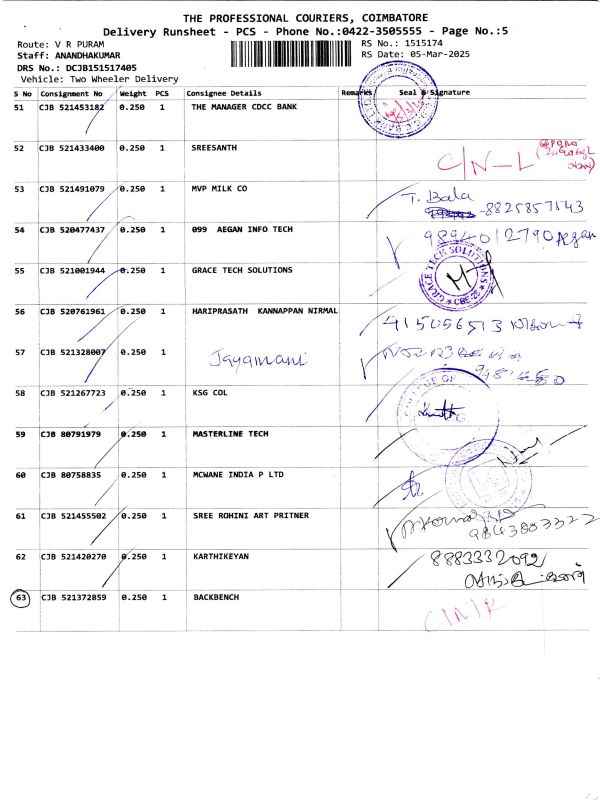 THE PROFESSIONAL COURIERS, COIMBATORE
Delivery Runsheet - PCS - Phone No.:0422-3505555 - Page No.:5
Route: V R PURAM
RS No.: 1515174
Staff: ANANDHAKUMAR
RS Date: 05-Mar-2025
DRS No.: DCJB151517405
Vehicle: Two Wheeler Delivery
S No Consignment No Weight PCS Consignee Details Remarks Seal & Signature
51 CJB 521453182 0.250 1 THE MANAGER CDCC BANK
52 CJB 521433400 0.250 1 SREESANTH
C/N-L
53 CJB 521491079 0.250 1 MVP MILK CO
T. Bala
8825857543
54 CJB 520477437 0.250 1 099 AEGAN INFO TECH
9894012790 Aegan
55 CJB 521001944 0.250 1 GRACE TECH SOLUTIONS
GRACE TECH SOLUTIONS
56 CJB 520761961 0.250 1 HARIPRASATH KANNAPPAN NIRMAL
57 CJB 521328007 0.250 1 Jayamani
58 CJB 521267723 0.250 1 KSG COL
59 CJB 80791979 0.250 1 MASTERLINE TECH
60 CJB 80758835 0.250 1 MCWANE INDIA P LTD
61 CJB 521455502 0.250 1 SREE ROHINI ART PRITNER
9843803322
62 CJB 521420270 0.250 1 KARTHIKEYAN
8883332092
63 CJB 521372859 0.250 1 BACKBENCH